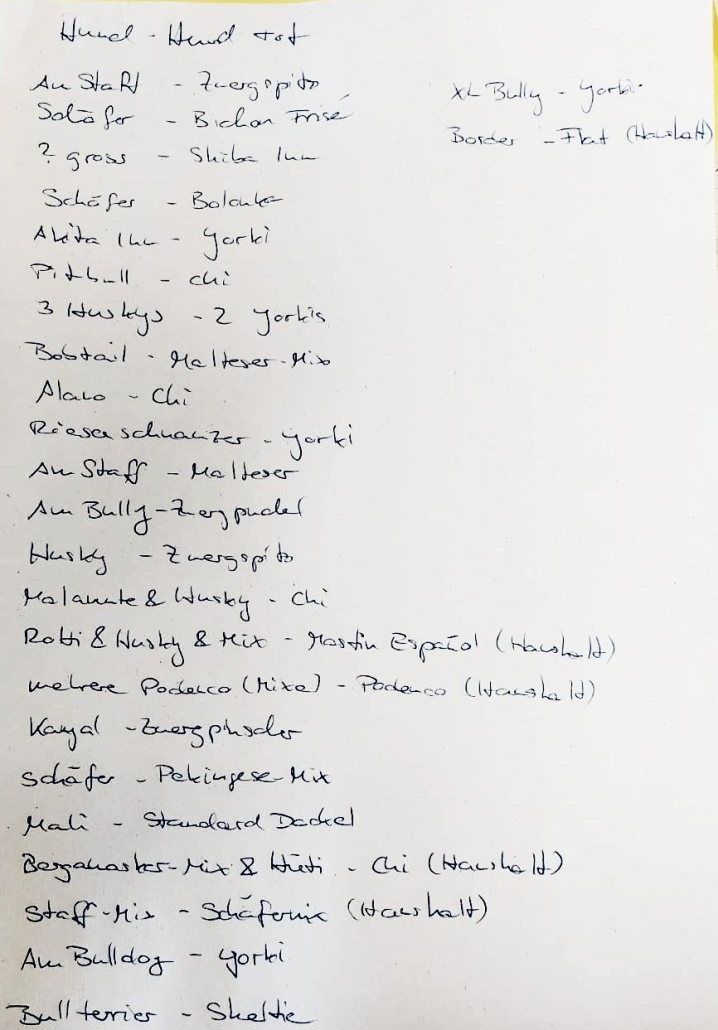 Hund - Hund tot
Am Staff - Zwergspitz
Schäfer - Bichon Frisé
? gross - Shiba Inu
Schäfer - Bolonka
Akita Inu - Yorki
Pitbull - Chi
3 Huskys - 2 Yorkis
Bobtail - Malteser-Mix
Alano - Chi
Riesenschnauzer - Yorki
Am Staff - Malteser
Am Bully - Zwergpudel
Husky - Zwergspitz
Malamute & Husky - Chi
Rotti & Husky & Mix - Mastin Español (Haushalt)
mehrere Podenco (Mixe) - Podenco (Haushalt)
Kangal - Zwergpinscher
Schäfer - Pekingese-Mix
Mali - Standard Dackel
Bergamasker-Mix & Hüti - Chi (Haushalt)
Staff-Mix - Schäfermix (Haushalt)
Am Bulldog - Yorki
Bullterrier - Sheltie
XL Bully - Yorki
Border - Flat (Haushalt)